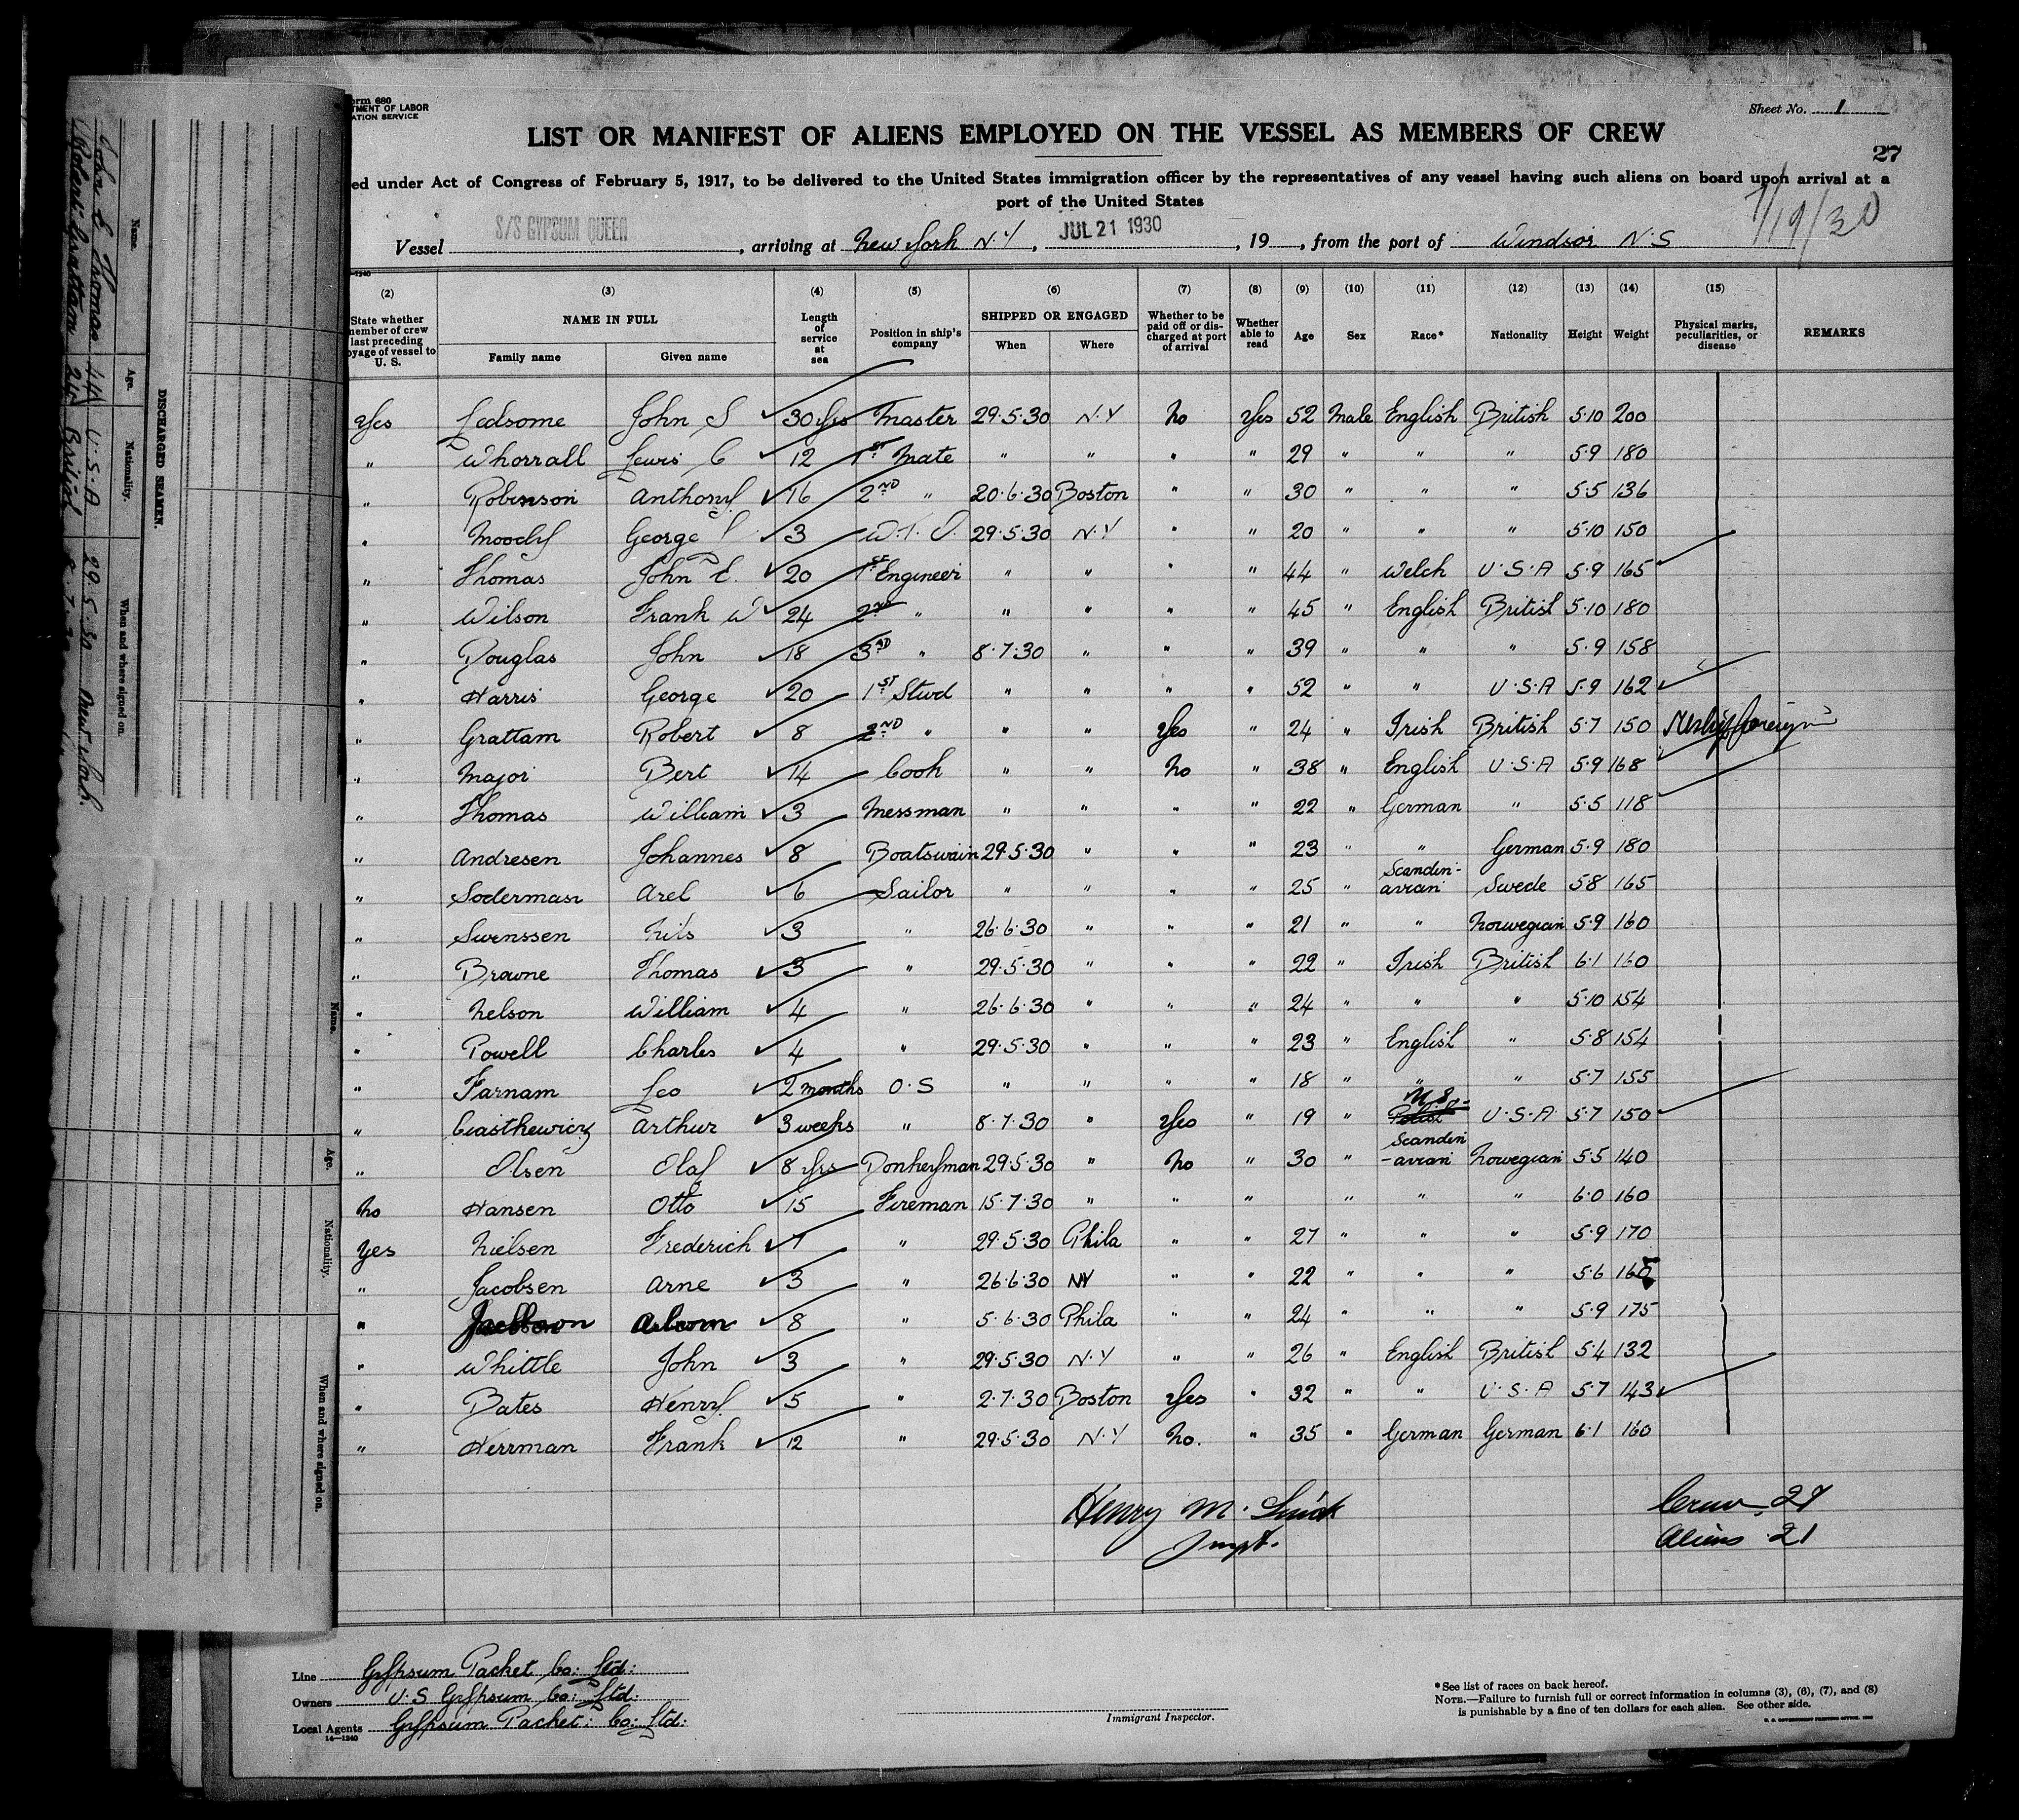 Form 680
TMENT OF LABOR
ATION SERVICE
Sheet No. 1
LIST OR MANIFEST OF ALIENS EMPLOYED ON THE VESSEL AS MEMBERS OF CREW
27
ed under Act of Congress of February 5, 1917, to be delivered to the United States immigration officer by the representatives of any vessel having such aliens on board upon arrival at a
port of the United States
7/19/30
Vessel S/S GYPSUM QUEEN, arriving at New York N.Y, JUL 21 1930, 19, from the port of Windsor N.S
(2) (3) (4) (5) (6) (7) (8) (9) (10) (11) (12) (13) (14) (15)
State whether member of crew last preceding voyage of vessel to U. S. NAME IN FULL Family name Given name Length of service at sea Position in ship's company SHIPPED OR ENGAGED When Where Whether to be paid off or discharged at port of arrival Whether able to read Age Sex Race* Nationality Height Weight Physical marks, peculiarities, or disease REMARKS
Yes Ledsome John S 30 yrs Master 29.5.30 N.Y No Yes 52 Male English British 5.10 200
" Whorrall Lewis C 12 1st Mate " " " " 29 " " " 5.9 180
" Robinson Anthony 16 2ND " 20.6.30 Boston " " 30 " " " 5.5 136
" Moody George 3 W.T.O. 29.5.30 N.Y " " 20 " " " 5.10 150
" Thomas John E. 20 1st Engineer " " " " 44 " Welch U.S.A 5.9 165
" Wilson Frank W 24 2nd " " " " " 45 " English British 5.10 180
" Douglas John 18 3RD " 8.7.30 " " " 39 " " " 5.9 158
" Harris George 20 1ST Stwd " " " " 52 " " U.S.A 5.9 162
" Grattam Robert 8 2ND " " " Yes " 24 " Irish British 5.7 150 Reship foreign
" Major Bert 14 Cook " " No " 38 " English U.S.A 5.9 168
" Thomas William 3 Messman " " " " 22 " German " 5.5 118
" Andresen Johannes 8 Boatswain 29.5.30 " " " 23 " " German 5.9 180
" Soderman Axel 6 Sailor " " " " 25 " Scandin-avian Swede 5.8 165
" Swenssen Nils 3 " 26.6.30 " " " 21 " " Norwegian 5.9 160
" Browne Thomas 3 " 29.5.30 " " " 22 " Irish British 6.1 160
" Nelson William 4 " 26.6.30 " " " 24 " " " 5.10 154
" Powell Charles 4 " 29.5.30 " " " 23 " English " 5.8 154
" Farnam Leo 2 months O.S " " " " 18 " " " 5.7 155
" Ciasthewicz Arthur 3 weeks " 8.7.30 " Yes " 19 " U.S. U.S.A 5.7 150
" Olsen Olaf 8 yrs Donkeyman 29.5.30 " No " 30 " Scandin-avian Norwegian 5.5 140
No Hansen Otto 15 Fireman 15.7.30 " " " " " " 6.0 160
Yes Nielsen Frederich 7 " 29.5.30 Phila " " 27 " " " 5.9 170
" Jacobsen Arne 3 " 26.6.30 NY " " 22 " " " 5.6 165
" 8 " 5.6.30 Phila " " 24 " " " 5.9 175
" Whittle John 3 " 29.5.30 N.Y " " 26 " English British 5.4 132
" Bates Henry 5 " 2.7.30 Boston Yes " 32 " " U.S.A 5.7 143
" Herrman Frank 12 " 29.5.30 N.Y No. " 35 " German German 6.1 160
Henry M.
Inspt.
Crew 27
Aliens 21
Line Gypsum Packet Co: Ltd:
Owners U.S Gypsum Co: Ltd:
Local Agents Gypsum Packet: Co: Ltd:
14—1240
Immigrant Inspector.
*See list of races on back hereof.
NOTE.—Failure to furnish full or correct information in columns (3), (6), (7), and (8)
is punishable by a fine of ten dollars for each alien. See other side.
U. S. GOVERNMENT PRINTING OFFICE
DISCHARGED SEAMEN.
Name. Age. Nationality. When and where signed on.
John E Thomas 44 U.S.A 29.5.30 New York.
Robert Grattam 24 British 8.7.30
Name. Age. Nationality. When and where signed on.